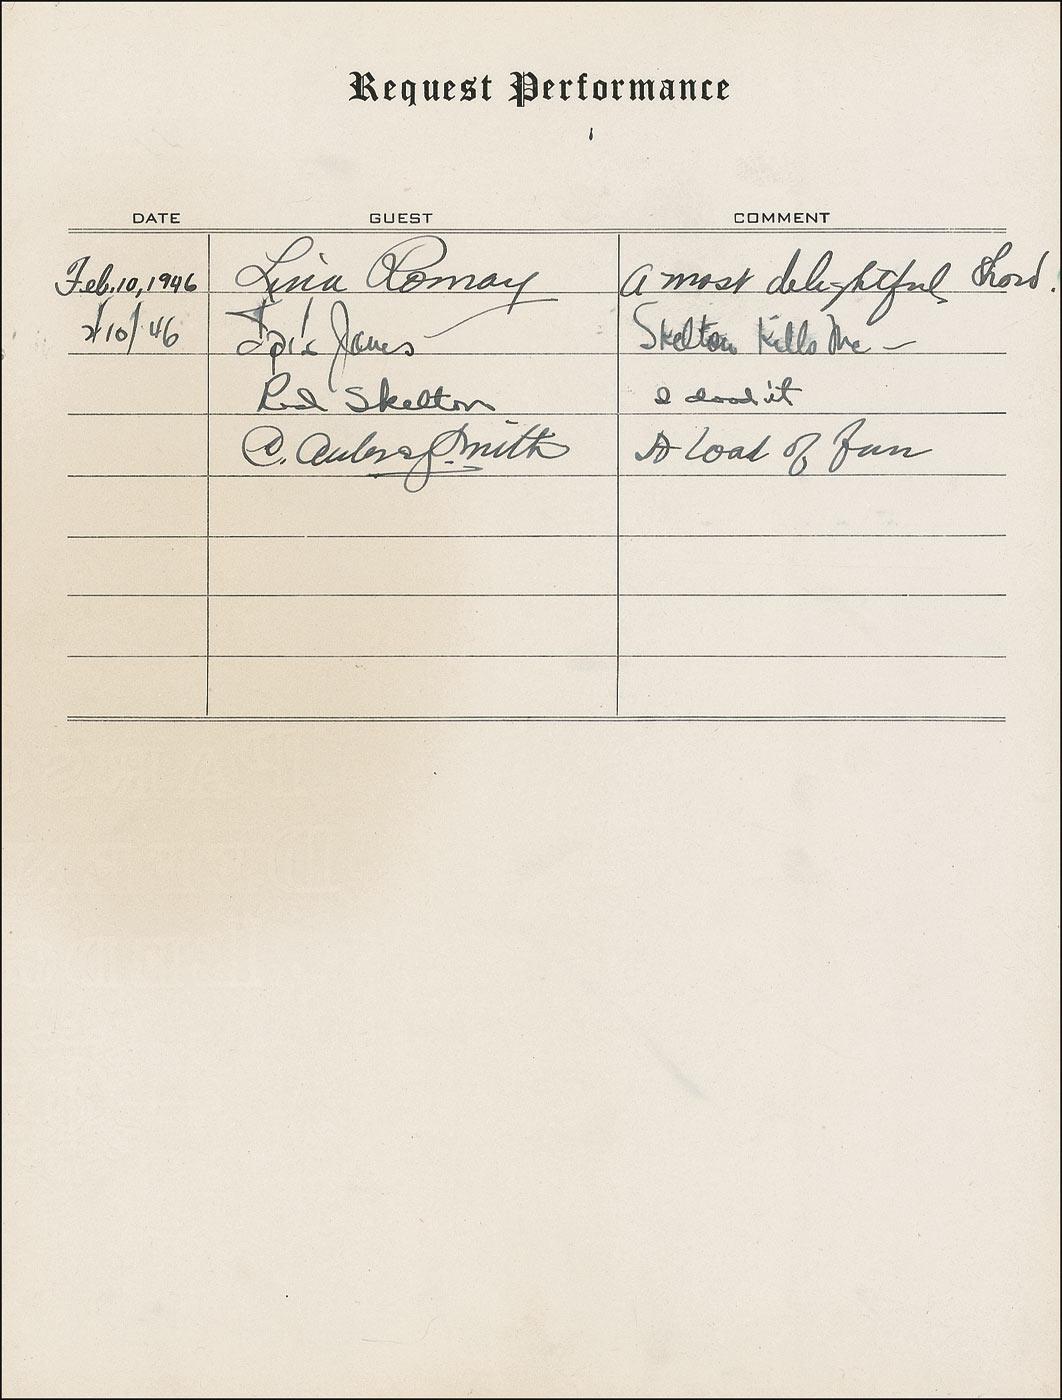 Request Performance
DATE GUEST COMMENT
Feb. 10, 1946 Lina Romay A most delightful show.
2/10/46 Spike Jones Skelton Kills Me —
Red Skelton I dood it
C. Aubrey Smith A load of fun